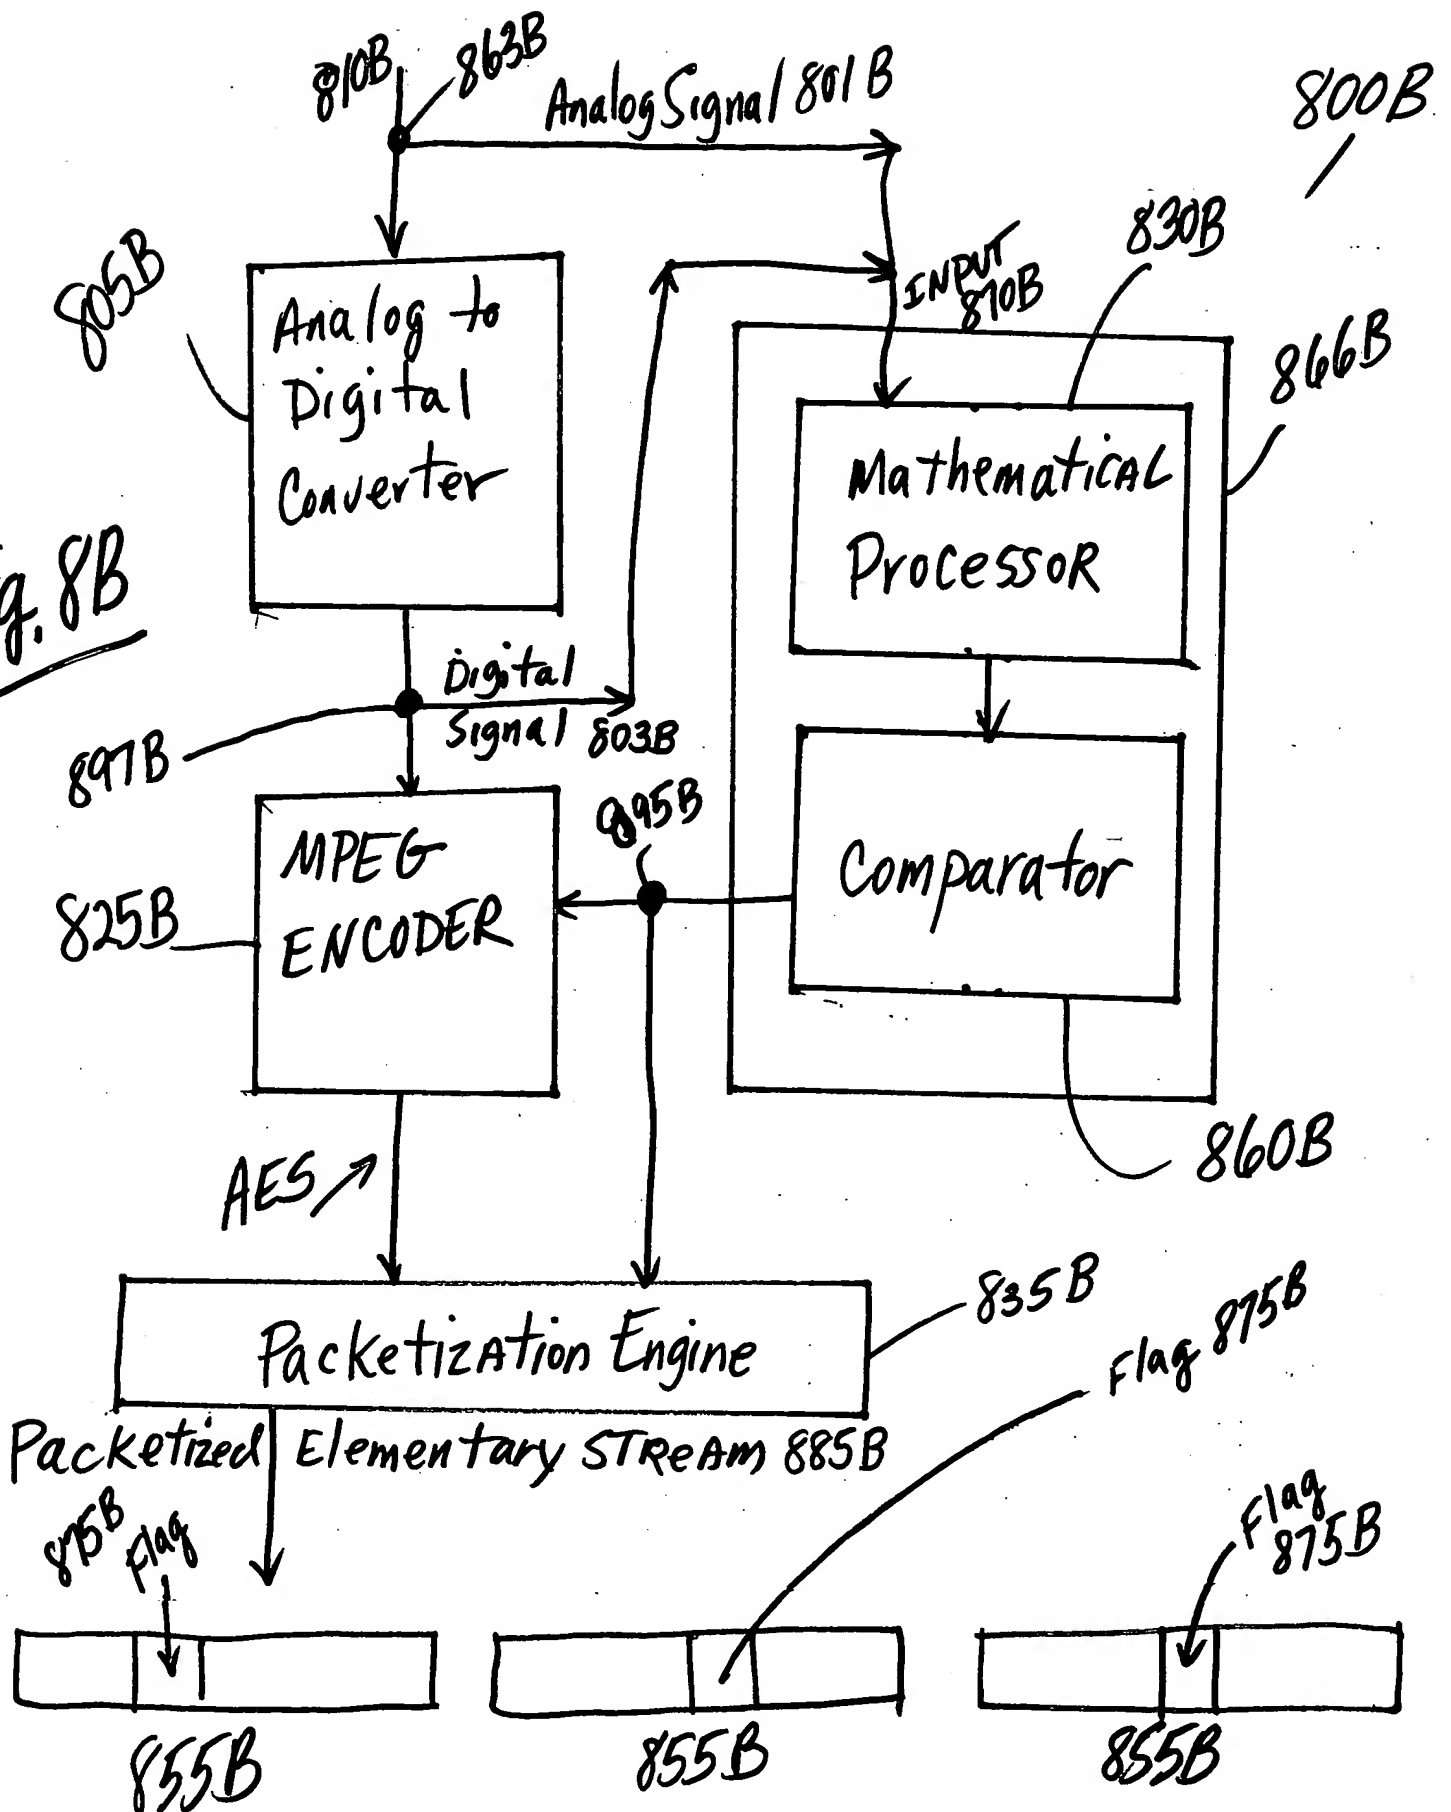 810B
863B
Analog Signal 801B
800B
805B
Analog to
Digital
Converter
INPUT
870B
830B
866B
Mathematical
Processor
g. 8B
Digital
Signal 803B
897B
895B
MPEG
ENCODER
825B
Comparator
860B
AES
Packetization Engine
835B
Flag 875B
Packetized Elementary Stream 885B
875B
Flag
Flag
875B
855B
855B
855B